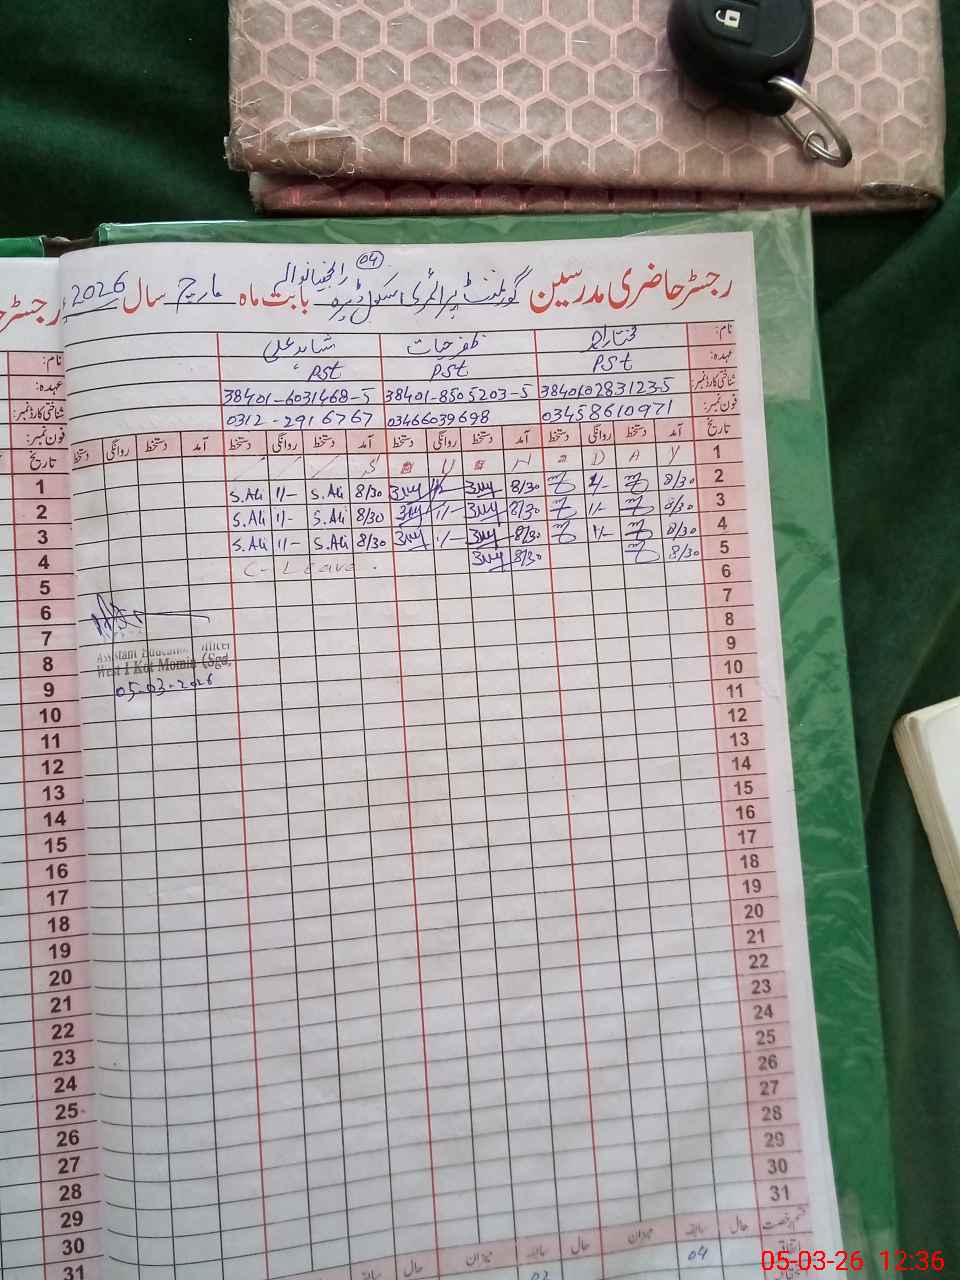 رجسٹر حاضری مدرسین گورنمنٹ پرائمری اسکول ڈیرہ بابت ماہ مارچ سال 2026
04
نام: ظفر حیات شاہد علی
عہدہ: PSt PSt PSt
شناختی کارڈ نمبر: 38401-8505203-5 38401-6031468-5
فون نمبر: 03458610971 03466039698 0312-2916767
تاریخ آمد دستخط روانگی دستخط آمد دستخط روانگی دستخط آمد دستخط روانگی دستخط آمد دستخط روانگی دستخط
1 S U N D A Y
2 8/30 1/- 8/30 1/- 8/30 S.Ali 1/- S.Ali
3 8/30 1/- 8/30 1/- 8/30 S.Ali 1/- S.Ali
4 8/30 1/- 8/30 1/- 8/30 S.Ali 1/- S.Ali
5 8/30 8/30 C-Leave
6
7
8
9
10
11
12
13
14
15
16
17
18
19
20
21
22
23
24
25
26
27
28
29
30
31
Assistant Education Officer
West I Kot Momin (Sgd)
05-03-2026
حال سابقہ میزان حال سابقہ میزان حال سابقہ
04 02
رجسٹر
نام:
عہدہ:
شناختی کارڈ نمبر:
فون نمبر:
تاریخ
1
2
3
4
5
6
7
8
9
10
11
12
13
14
15
16
17
18
19
20
21
22
23
24
25
26
27
28
29
30
31
05-03-26 12:36